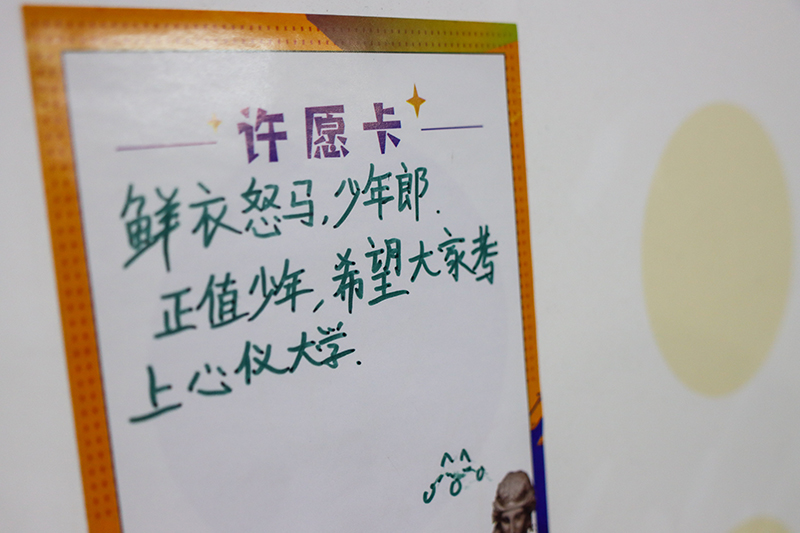 许愿卡
鲜衣怒马,少年郎.
正值少年,希望大家考
上心仪大学.